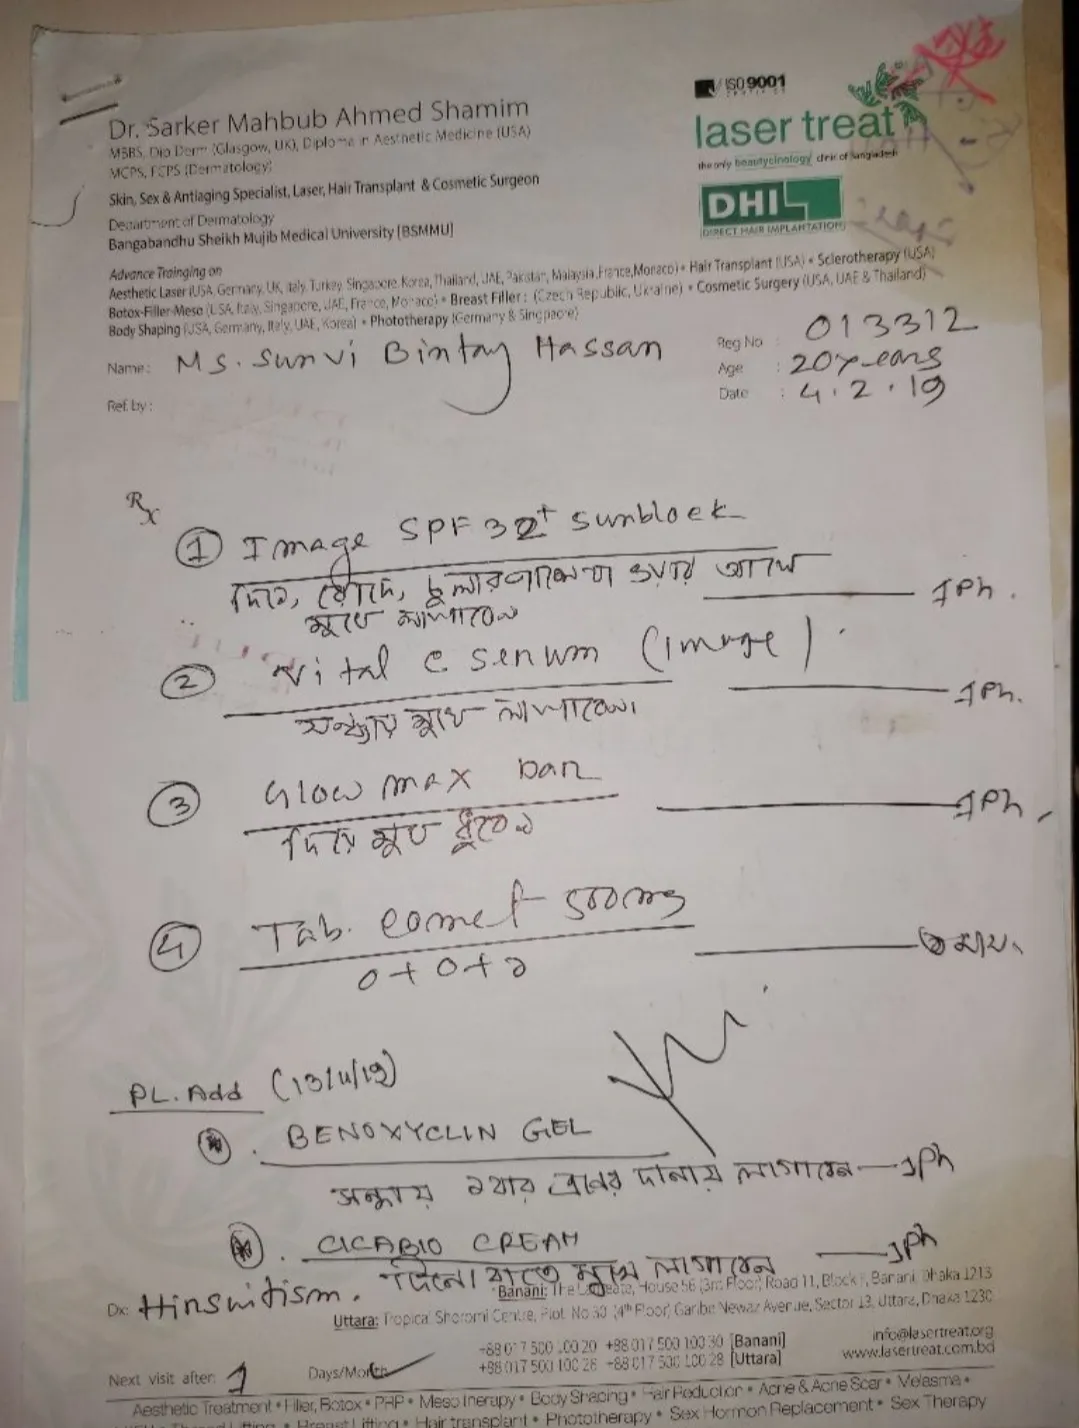 ISO 9001
Dr. Sarker Mahbub Ahmed Shamim
MBBS, Dip Derm (Glasgow, UK), Diploma in Aesthetic Medicine (USA)
MCPS, FCPS (Dermatology)
Skin, Sex & Antiaging Specialist, Laser, Hair Transplant & Cosmetic Surgeon
Department of Dermatology
Bangabandhu Sheikh Mujib Medical University [BSMMU]
laser treat
the only beautycinology clinic of bangladesh
DHI
DIRECT HAIR IMPLANTATION
Advance Trainging on
Aesthetic Laser (USA, Germany, UK, Italy, Turkey, Singapore, Korea, Thailand, UAE, Pakistan, Malaysia, France, Monaco) • Hair Transplant (USA) • Sclerotherapy (USA)
Botox-Filler-Meso (USA, Italy, Singapore, UAE, France, Monaco) • Breast Filler : (Czech Republic, Ukraine) • Cosmetic Surgery (USA, UAE & Thailand)
Body Shaping (USA, Germany, Italy, UAE, Korea) • Phototherapy (Germany & Singpaore)
Name : Ms. Sunvi Bintay Hassan
Reg No : 013312
Age : 20 years
Date : 4.2.19
Ref. by :
Rx
1 Image SPF 32+ sunblock
দিনে, রোদে, চুলার পাশে যাওয়ার আগে
মুখে লাগাবেন
1 Ph.
2 Vital C serum (Image)
সন্ধ্যায় মুখে লাগাবেন।
1 Ph.
3 Glow max bar
দিয়ে মুখ ধুবেন
1 Ph.
4 Tab. Comet 500mg
০+০+১
৩ মাস.
PL. Add (13/4/19)
BENOXYCLIN GEL
সন্ধ্যায় ১বার ব্রনের দানায় লাগাবেন 1Ph
CICABIO CREAM
দিনে। রাতে মুখে লাগাবেন 1Ph
Dx: Hirsuitism.
Banani: House 56 (3rd Floor) Road 11, Block F, Banani, Dhaka 1213
Uttara: Tropical Centre, Plot No 30 (4th Floor) Garibe Newaz Avenue, Sector 13, Uttara, Dhaka 1230
+88 017 500 100 20 +88 017 500 100 30 [Banani]
+88 017 500 100 26 +88 017 500 100 28 [Uttara]
info@lasertreat.org
www.lasertreat.com.bd
Next visit after: 1 Days/Month
Aesthetic Treatment • Filler, Botox • PRP • Meso Therapy • Body Shaping • Hair Reduction • Acne & Acne Scar • Melasma •
Breast Lifting • Hair transplant • Phototherapy • Sex Hormon Replacement • Sex Therapy